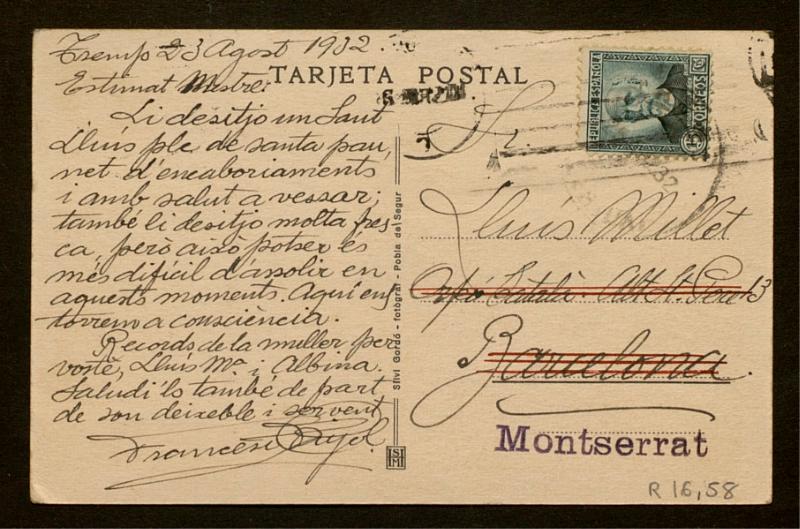 Tremp 23 Agost 1932.
Estimat Mestre:
TARJETA POSTAL
Li desitjo un Sant
Lluís ple de santa pau,
net d'encaboriaments
i amb salut a vessar;
també li desitjo molta fres
ca, però això potser és
més difícil d'assolir en
aquests moments. Aquí ens
torrem a consciència.
Records de la muller per
vostè, Lluís Mª i Albina.
Saludi'ls també de part
de son deixeble i servent
Francesc Pujol.
Sfivi Gordó - fotògraf - Pobla del Segur
REPUBLICA ESPAÑOLA
CORREOS
15
Sr.
Lluís Millet
Orfó Català - Alt St. Pere 13
Barcelona.
Montserrat
R 16,58